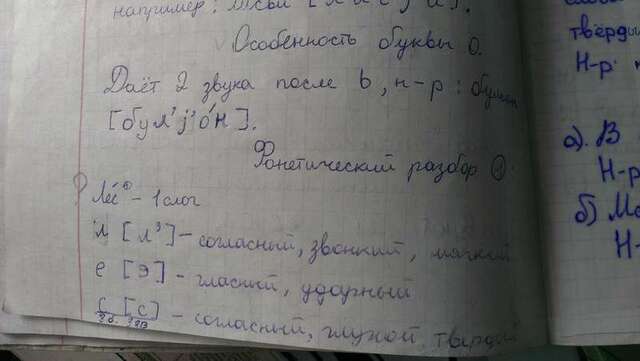 например:
Особенность буквы О.
Даёт 2 звука после ь, н-р: бульон
[бул'й'о́н].
Фонетический разбор
Лес - 1 слог
л [л'] - согласный, звонкий, мягкий
е [э] - гласный, ударный
с [с] - согласный, глухой, твёрдый
2б. 2зв
твёрды
Н-р:
а). В
Н-р
б) Мо
Н-